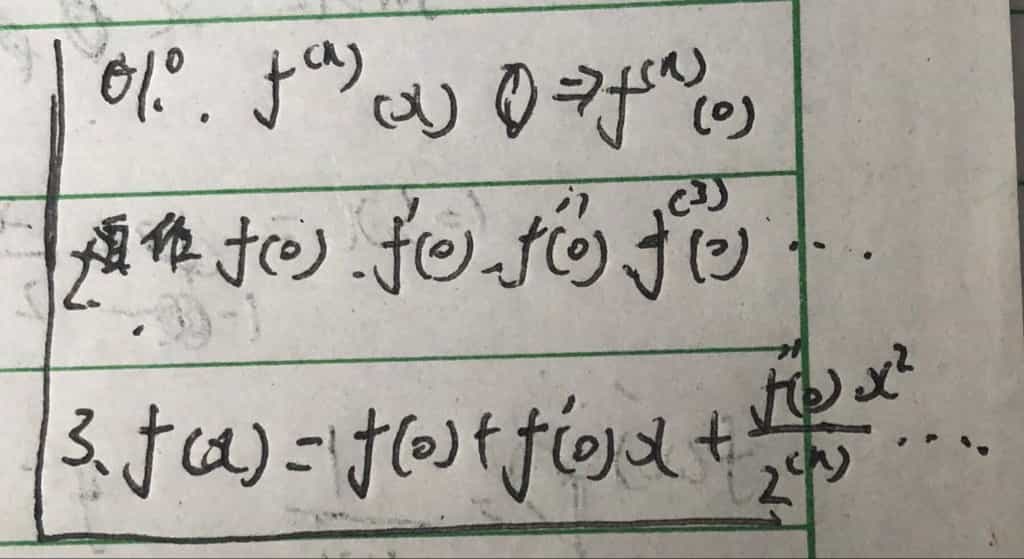 f⁽ⁿ⁾(x) ⇒ f⁽ⁿ⁾(0)
2. f(0). f'(0). f''(0) f⁽³⁾(0) ....
3、f(x) = f(0) + f'(0)x + f''(0)x²/2⁽ⁿ⁾ ....